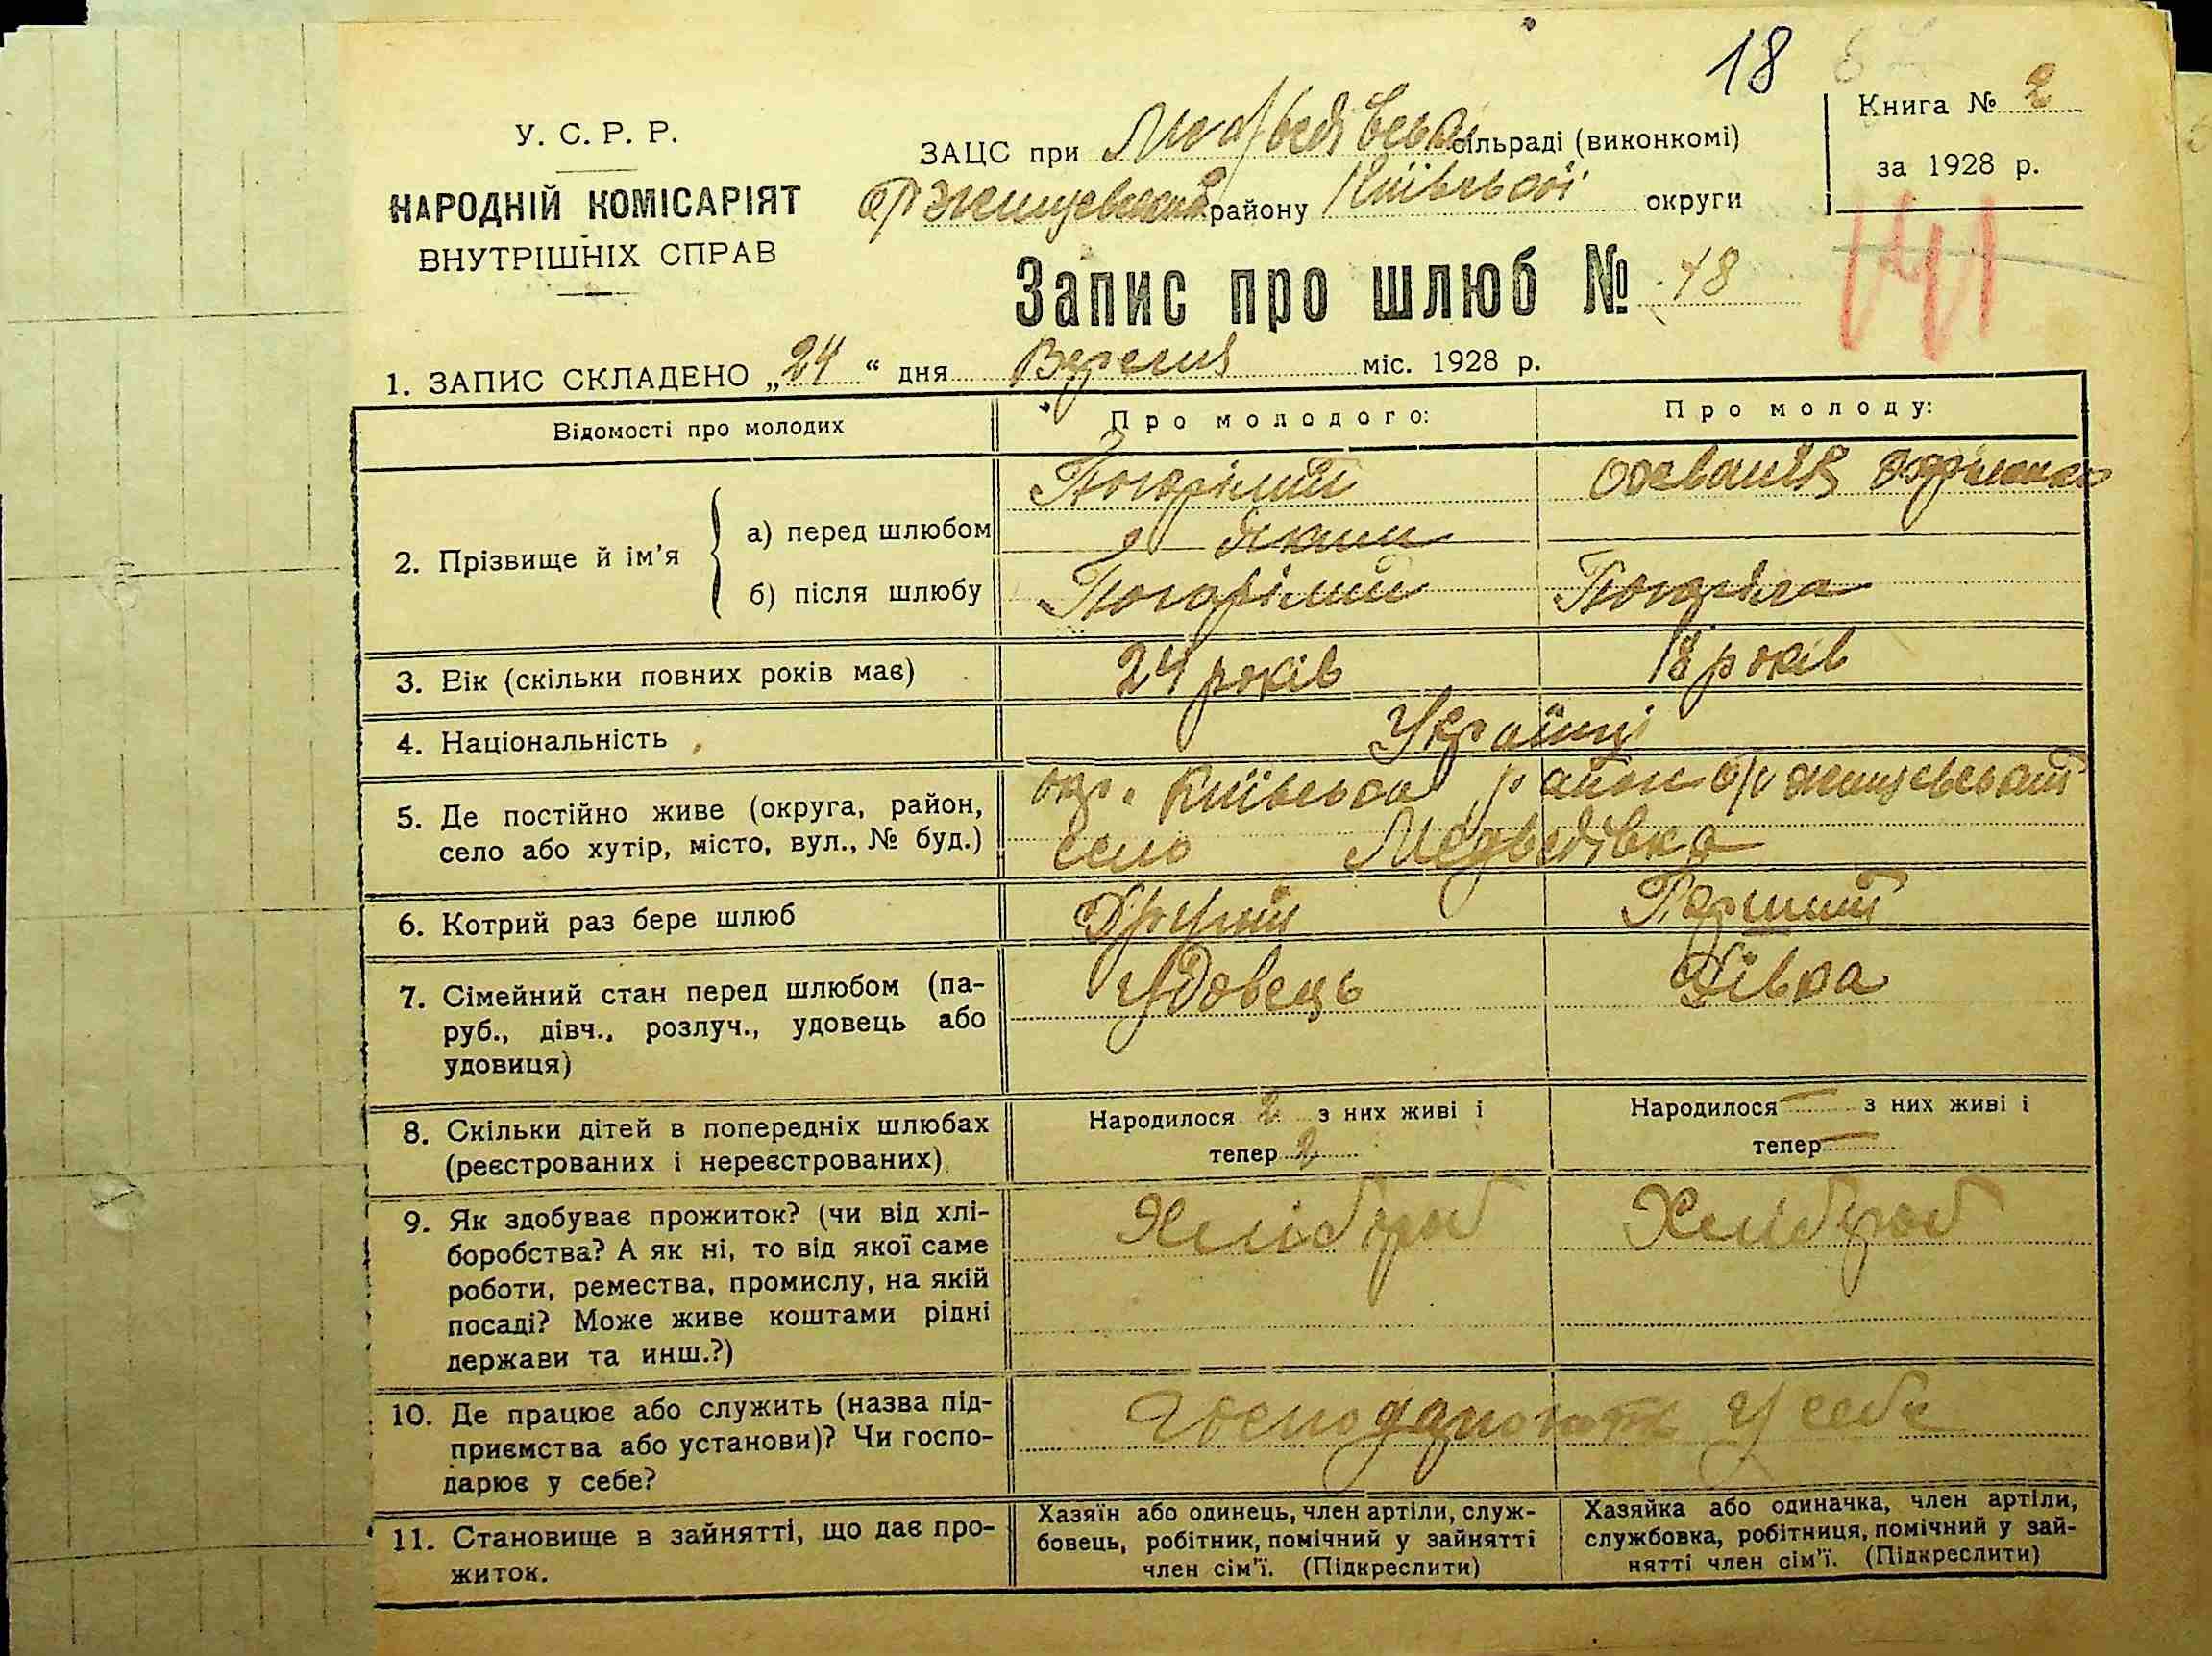 18
У. С. Р. Р.
НАРОДНІЙ КОМІСАРІЯТ
ВНУТРІШНІХ СПРАВ
ЗАЦС при Медведівській сільраді (виконкомі)
району Київської округи
Книга № 2
за 1928 р.
141
Запис про шлюб № 18
1. ЗАПИС СКЛАДЕНО „24“ дня Вересня міс. 1928 р.
Відомості про молодих
Про молодого:
Про молоду:
2. Прізвище й ім’я
а) перед шлюбом
Погорілий
Яким
б) після шлюбу
Погорілий
Погоріла
3. Вік (скільки повних років має)
24 років
18 років
4. Національність
Українці
5. Де постійно живе (округа, район,
село або хутір, місто, вул., № буд.)
окр. Київська район
село Медведівка
6. Котрий раз бере шлюб
Другий
Перший
7. Сімейний стан перед шлюбом (па-
руб., дівч., розлуч., удовець або
удовиця)
Удовець
Дівка
8. Скільки дітей в попередніх шлюбах
(реєстрованих і нереєстрованих)
Народилося 2 з них живі і
тепер 2
Народилося — з них живі і
тепер —
9. Як здобуває прожиток? (чи від хлі-
боробства? А як ні, то від якої саме
роботи, ремества, промислу, на якій
посаді? Може живе коштами рідні
держави та инш.?)
Хлібороб
Хлібороб
10. Де працює або служить (назва під-
приємства або установи)? Чи госпо-
дарює у себе?
Господарюють у себе
11. Становище в зайнятті, що дає про-
житок.
Хазяїн або одинець, член артіли, служ-
бовець, робітник, помічний у зайнятті
член сім’ї. (Підкреслити)
Хазяйка або одиначка, член артіли,
службовка, робітниця, помічний у зай-
нятті член сім’ї. (Підкреслити)